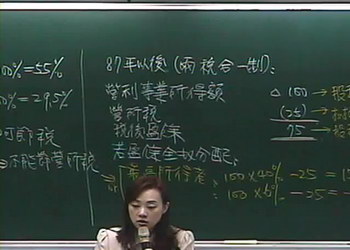 00%=55%
0%=29.5%
可節稅
不能節營所稅
87年以後(兩稅合一制):
營利事業所得額 △ 100
營所稅 (25)
稅後盈餘 75
若盈餘全數分配:
最高所得者: 100×40%-25=1
100×6%-25=